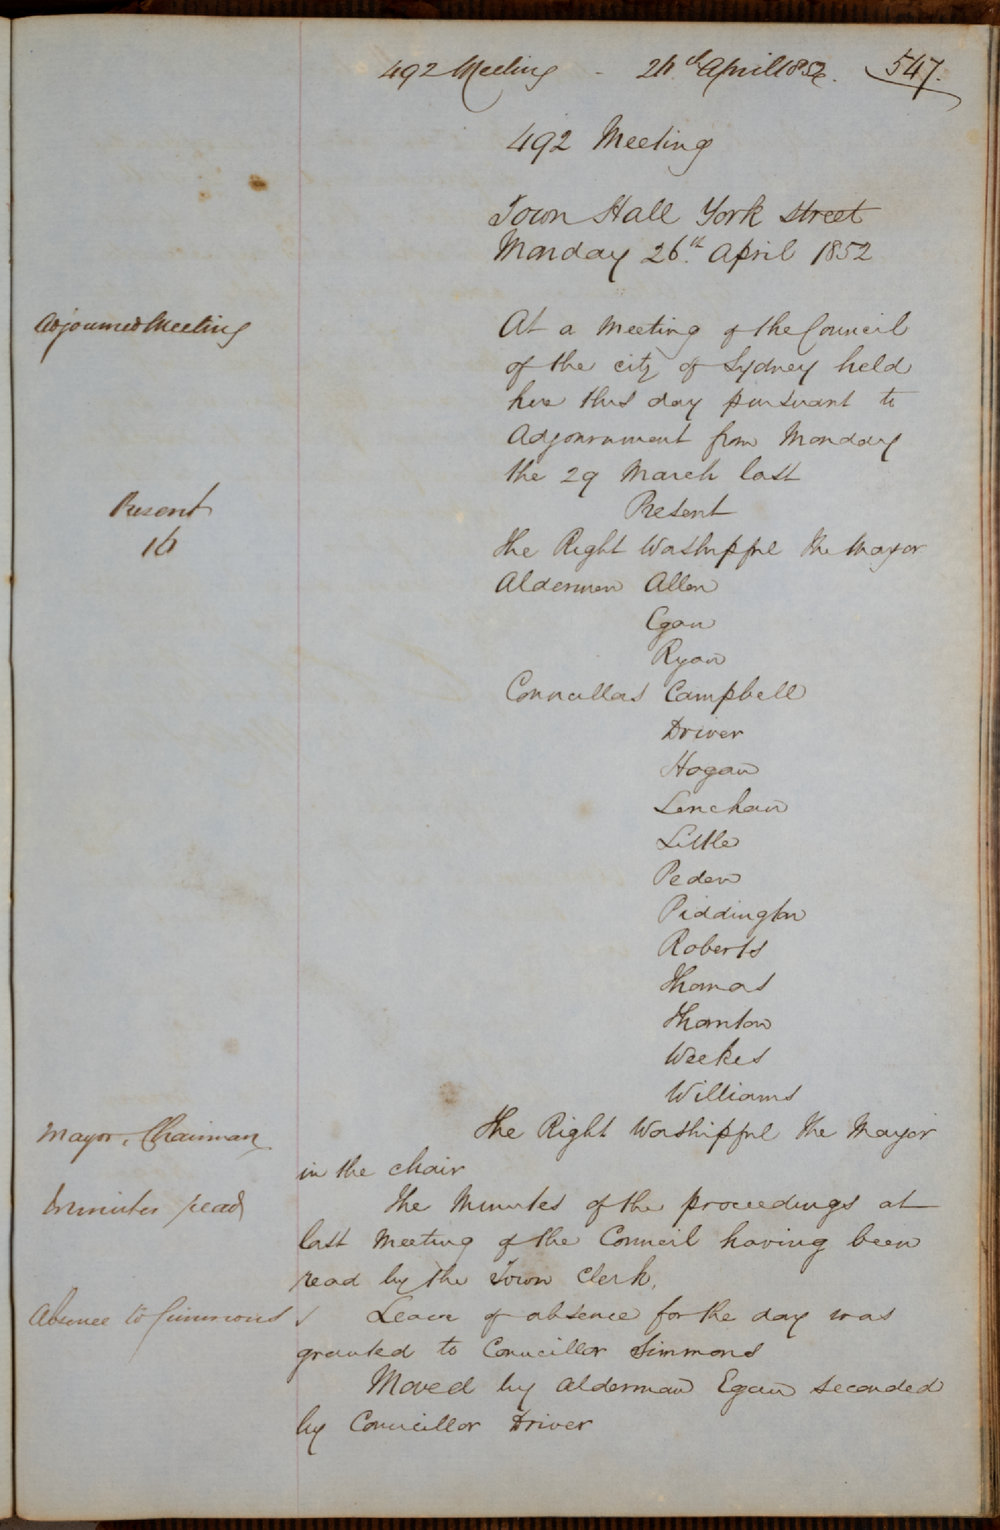 492 Meeting - 26th April 1852. 547.
492 Meeting
Town Hall York Street
Monday 26th April 1852
Adjourned Meeting
At a Meeting of the Council
of the city of Sydney held
here this day pursuant to
Adjournment from Monday
the 29 March last
Present
16
Present
The Right Worshipful the Mayor
Aldermen Allen
Egan
Ryan
Councillors Campbell
Driver
Hogan
Lenehan
Little
Peden
Piddington
Roberts
Thomas
Thornton
Weekes
Williams
Mayor, Chairman
The Right Worshipful the Mayor
in the chair
Minutes read
The Minutes of the proceedings at
last Meeting of the Council having been
read by the Town Clerk.
Absence to Simmons
Leave of absence for the day was
granted to Councillor Simmons
Moved by Alderman Egan seconded
by Councillor Driver